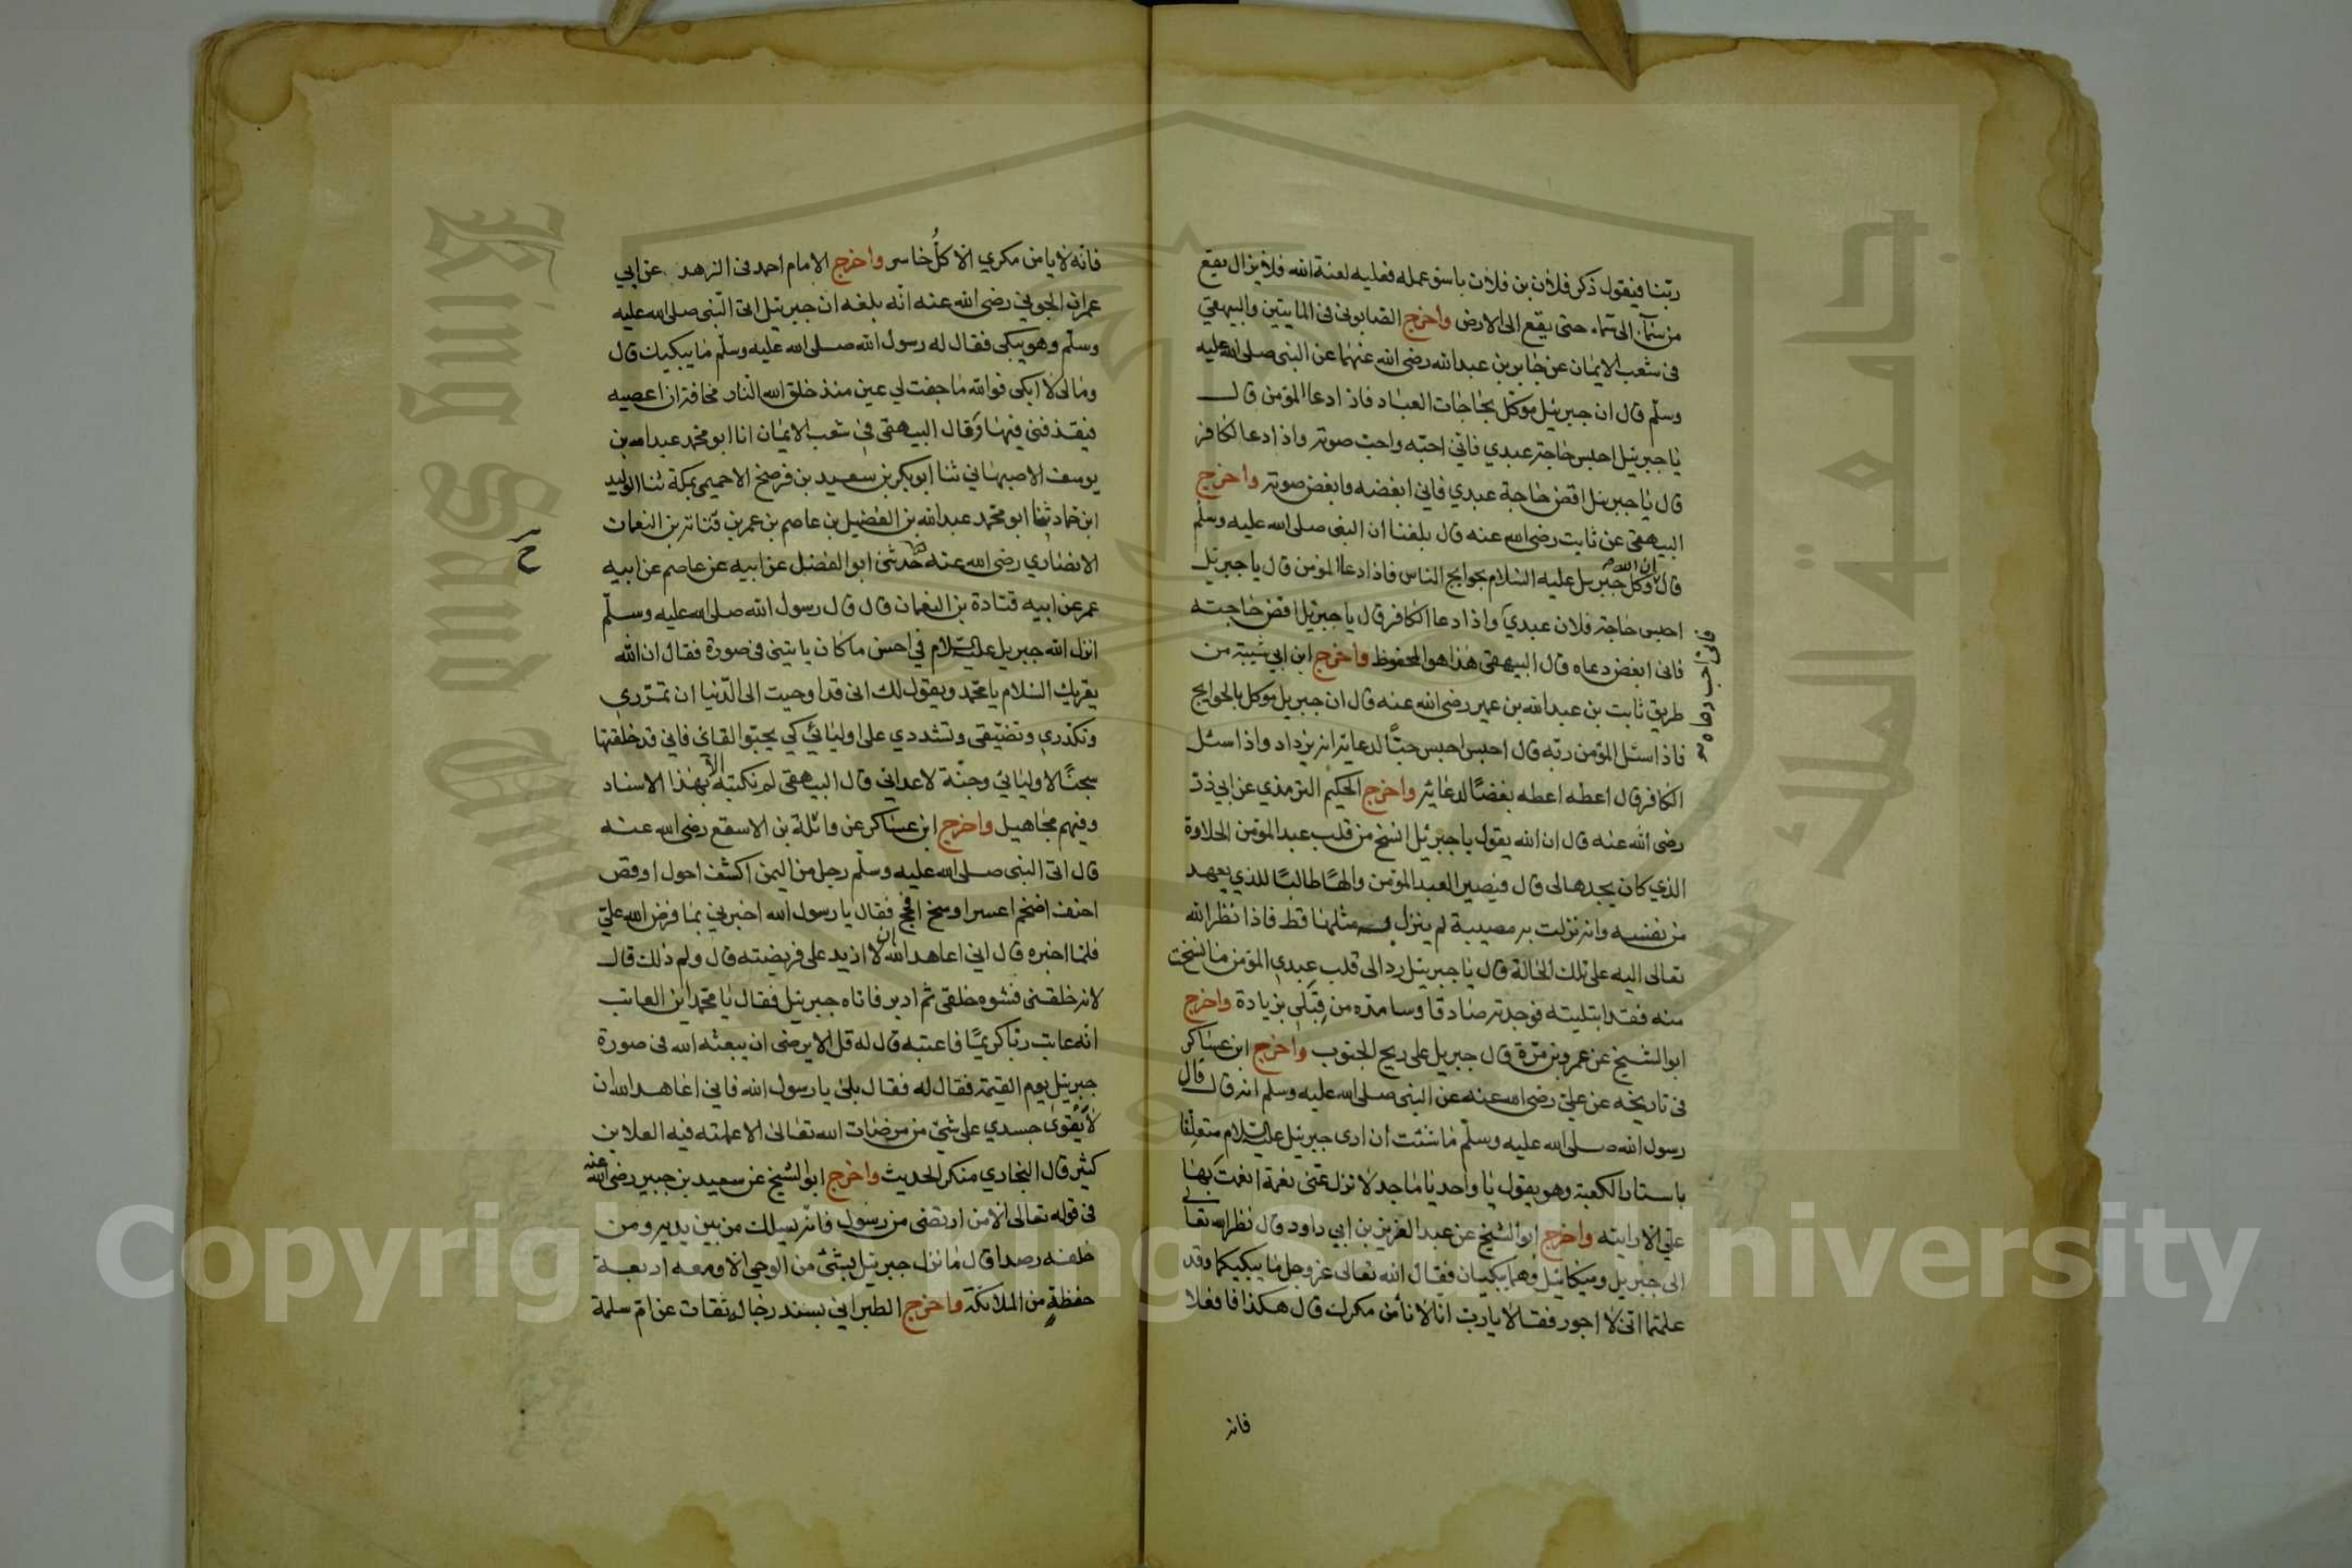 ربّنا فيقول ذكر فلان بن فلان باسوء عمله فعليه لعنة الله فلا يزال يقع
من سمآء الى سماء حتى يقع الى الارض واخرج الصابونى فى المايتين والبيهقي
فى شعب الايمان عن جابر بن عبدالله رضى الله عنهما عن النبى صلى الله عليه
وسلّم قال ان جبرئيل موكّل بحاجات العباد فاذا دعا المؤمن قال
يا جبرئيل احبس حاجة عبدي فانّي احبّه واحب صوته واذا دعا الكافر
قال يا جبرئيل اقض حاجة عبدي فانى ابغضه وابغض صوته واخرج
البيهقى عن ثابت رضى الله عنه قال بلغنا ان النبى صلى الله عليه وسلّم
قال ان الله وكل جبريل عليه السلام بحوايج الناس فاذا دعا المؤمن قال يا جبرئيل
احبس حاجة فلان عبدي واذا دعا الكافر قال يا جبرئيل اقض حاجته
فانى احب دعاه
فانى ابغض دعاه قال البيهقى هذا هو المحفوظ واخرج ابن ابي شيبة من
طريق ثابت بن عبدالله بن عمير رضى الله عنه قال ان جبريل موكل بالحوايج
فاذا سئل المؤمن ربّه قال احبس احبس حبًّا لدعائه ان يزداد واذا سئل
الكافر قال اعطه اعطه بغضًا لدعائه واخرج الحكيم الترمذي عن ابي ذر
رضى الله عنه قال ان الله يقول يا جبرئيل انسخ من قلب عبد المؤمن الحلاوة
الذي كان يجدها لى قال فيصير العبد المؤمن والهًا طالبًا للذي يعهد
من نفسه وانه نزلت به مصيبة لم ينزل به مثلها قط فاذا نظر الله
تعالى اليه على تلك الحالة قال يا جبرئيل رد الى قلب عبدي المؤمن ما نسخت
منه فقد ابتليته فوجدته صادقا وسامده من قِبَلى بزيادة واخرج
ابو الشيخ عن عمرو بن مرّة قال جبريل على ريح الجنوب واخرج ابن عساكر
فى تاريخه عن علىّ رضى الله عنه عن النبى صلى الله عليه وسلم انه قال قال
رسول الله صلى الله عليه وسلّم ما شئت ان ارى جبرئيل عليه السلام متعلّقا
باستار الكعبة وهو يقول يا واحد يا ماجد لا تزل عنّى نعمة انعمت بها
علي الا رايته واخرج ابو الشيخ عن عبد العزيز بن ابي داود قال نظر الله تعالى
الى جبريل وميكائيل وهما يبكيان فقال الله تعالى عز وجل ما يبكيكما وقد
علمتما انّى لا اجور فقالا يا ربّ انا لا نأمن مكرك قال هكذا فافعلا
فانه
فانّه لا يامن مكري الا كلُّ خاسر واخرج الامام احمد فى الزهد عن ابي
عمران الجوني رضى الله عنه انّه بلغه ان جبريئل اتى النّبى صلى الله عليه
وسلّم وهو يبكى فقال له رسول الله صلى الله عليه وسلّم ما يبكيك قال
ومالى لا ابكى فوالله ما جفت لي عين منذ خلق الله النّار مخافة ان اعصيه
فيقذفنى فيها وقال البيهقى فى شعب الايمان انا ابو محمّد عبدالله بن
يوسف الاصبهاني ثنا ابو بكر بن سعيد بن فرضخ الاخميمى بمكة ثنا الوليد
ابن حماد ثنا ابو محمّد عبدالله بن الفضيل بن عاصم بن عمر بن قتادة بن النعمان
الانصاري رضى الله عنه حدثنى ابو الفضل عن ابيه عن عاصم عن ابيه
عمر عن ابيه قتادة بن النعمان قال قال رسول الله صلى الله عليه وسلّم
انزل الله جبريل عليه السلام في احسن ما كان ياتينى فى صورة فقال ان الله
يقريك السلام يا محمّد ويقول لك انى قد اوحيت الى الدّنيا ان تمرّري
وتكدّري وتضيّقى وتشددي على اوليائي كي يحبّوا لقائي فانى قد خلقتها
سجنًا لاوليائي وجنّة لاعدائي قال البيهقى لم نكتبه الا بهذا الاسناد
وفيهم مجاهيل واخرج ابن عساكر عن واثلة بن الاسقع رضى الله عنه
قال اتى النبى صلى الله عليه وسلّم رجل من اليمن اكشف احول اوقص
احنف اضخم اعسر اوسخ افحج فقال يا رسول الله اخبرني بما فرض الله عليّ
فلمّا اخبره قال اني اعاهد الله ان لا ازيد على فريضته قال ولم ذلك قال
لانه خلقنى فشوه خلقى ثم ادبر فاتاه جبريئل فقال يا محمد اين العاتب
انّه عاتب ربّا كريمًا فاعتبه قال له قل الا يرضى ان يبعثه الله فى صورة
جبرئيل يوم القيمة فقال له فقال بلى يا رسول الله فانى اعاهد الله ان
لا يقوى جسدي على شئ من مرضات الله تعالى الا عملته فيه العلا بن
كثير قال البخاري منكر الحديث واخرج ابو الشيخ عن سعيد بن جبير رضى الله عنه
فى قوله تعالى الا من ارتضى من رسول فانّه يسلك من بين يديه ومن
خلفه رصدا قال ما نزل جبرئيل بشئ من الوحي الا ومعه اربعة
حفظة من الملائكة واخرج الطبراني بسند رجاله ثقات عن امّ سلمة
Copyright © King Saud University
King Saud University
جامعة الملك سعود